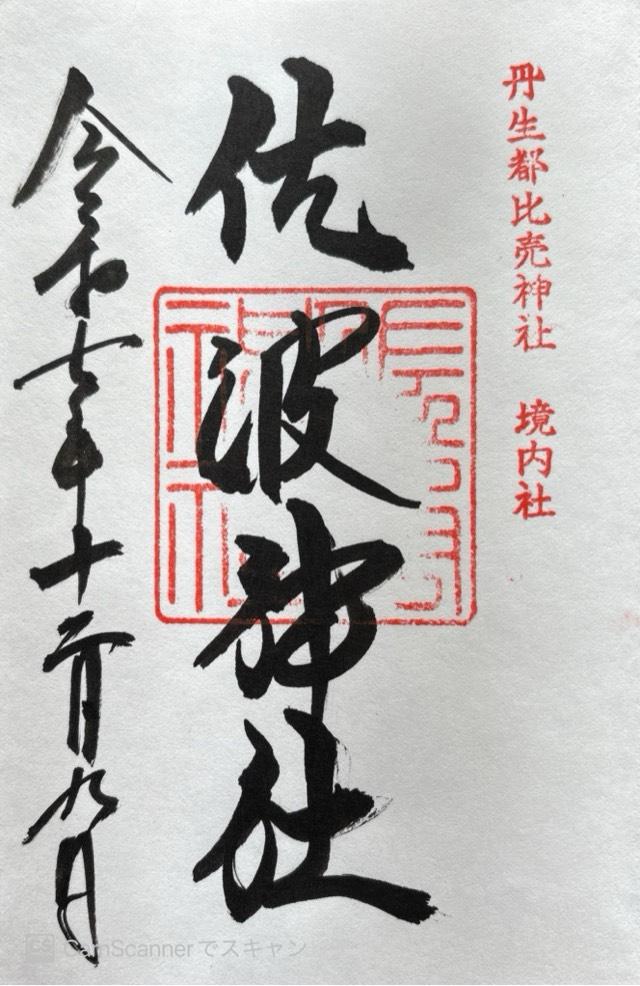 丹生都比売神社 境内社
佐波神社
令和七年十二月九日
CS CamScannerでスキャン